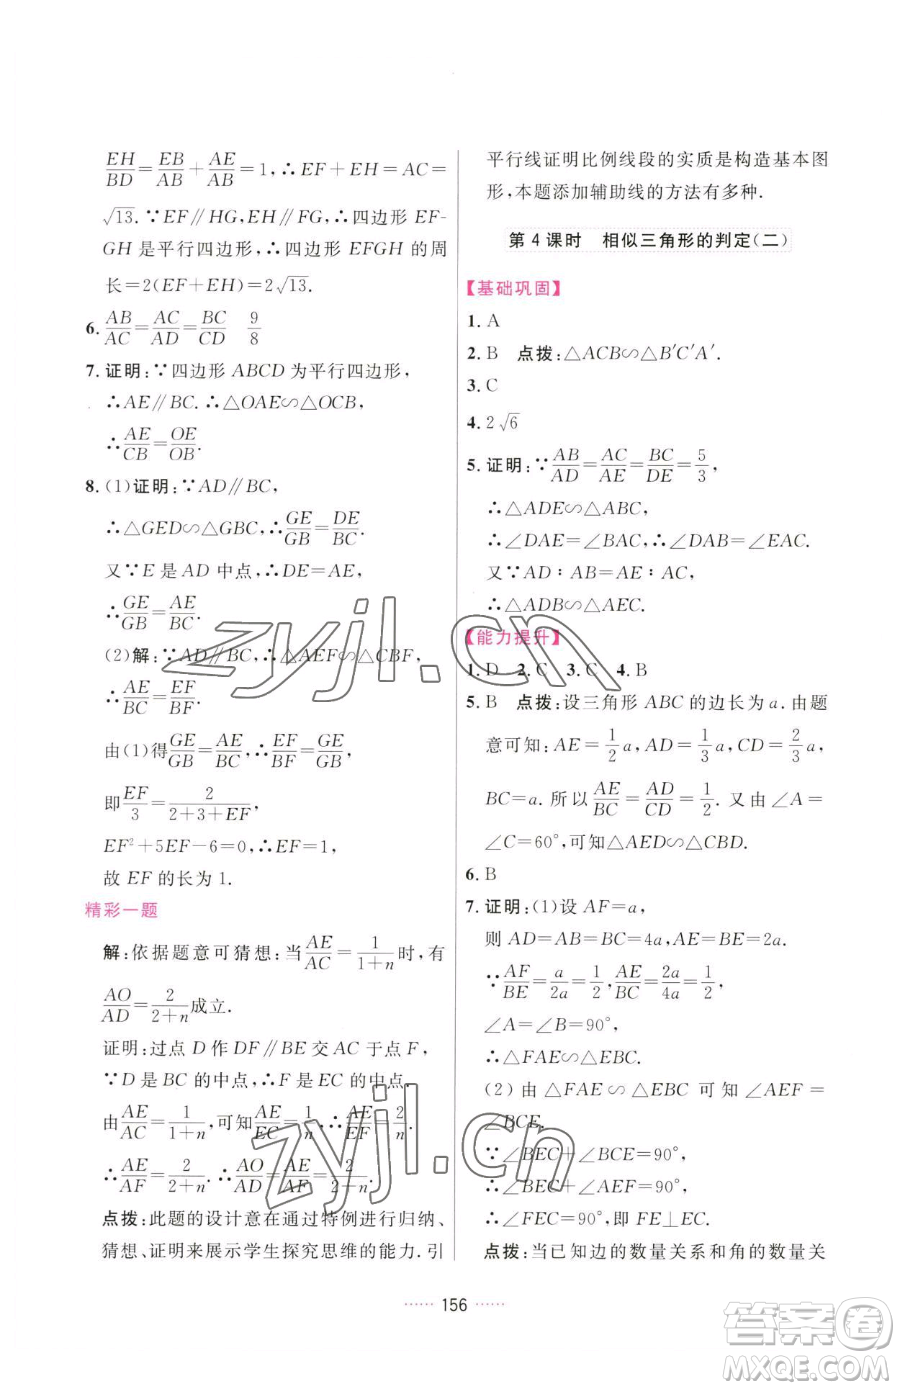 EH/BD=EB/AB+AE/AB=1,∴EF+EH=AC=
√13.∵EF∥HG,EH∥FG,∴四边形EF-
GH是平行四边形,∴四边形EFGH的周
长=2(EF+EH)=2√13.
6. AB/AC=AC/AD=BC/CD 9/8
7. 证明:∵四边形ABCD为平行四边形,
∴AE∥BC.∴△OAE∽△OCB,
∴AE/CB=OE/OB.
8. (1)证明:∵AD∥BC,
∴△GED∽△GBC,∴GE/GB=DE/BC.
又∵E是AD中点,∴DE=AE,
∴GE/GB=AE/BC.
(2)解:∵AD∥BC,∴△AEF∽△CBF,
∴AE/BC=EF/BF.
由(1)得GE/GB=AE/BC,∴EF/BF=GE/GB,
即EF/3=2/(2+3+EF),
EF²+5EF-6=0,∴EF=1,
故EF的长为1.
精彩一题
解:依据题意可猜想:当AE/AC=1/(1+n)时,有
AO/AD=2/(2+n)成立.
证明:过点D作DF∥BE交AC于点F,
∵D是BC的中点,∴F是EC的中点.
由AE/AC=1/(1+n),可知AE/EC=1/n,∴AE/EF=2/n.
∴AE/AF=2/(2+n).∴AO/AD=AE/AF=2/(2+n).
点拨:此题的设计意在通过特例进行归纳、
猜想、证明来展示学生探究思维的能力.引
平行线证明比例线段的实质是构造基本图
形,本题添加辅助线的方法有多种.
第4课时 相似三角形的判定(二)
【基础巩固】
1. A
2. B 点拨:△ACB∽△B′C′A′.
3. C
4. 2√6
5. 证明:∵AB/AD=AC/AE=BC/DE=5/3,
∴△ADE∽△ABC.
∴∠DAE=∠BAC,∴∠DAB=∠EAC.
又∵AD∶AB=AE∶AC,
∴△ADB∽△AEC.
【能力提升】
1. D 2. C 3. C 4. B
5. B 点拨:设三角形ABC的边长为a.由题
意可知:AE=1/2a,AD=1/3a,CD=2/3a,
BC=a.所以AE/BC=AD/CD=1/2.又由∠A=
∠C=60°,可知△AED∽△CBD.
6. B
7. 证明:(1)设AF=a,
则AD=AB=BC=4a,AE=BE=2a.
∵AF/BE=a/2a=1/2,AE/BC=2a/4a=1/2,
∠A=∠B=90°,
∴△FAE∽△EBC.
(2)由△FAE∽△EBC可知∠AEF=
∠BCE,
∵∠BEC+∠BCE=90°,
∴∠BEC+∠AEF=90°,
∴∠FEC=90°,即FE⊥EC.
点拨:当已知边的数量关系和角的数量关
······ 156 ······
zyjl.cn
zyjl.cn
答案圈
MXQE.COM